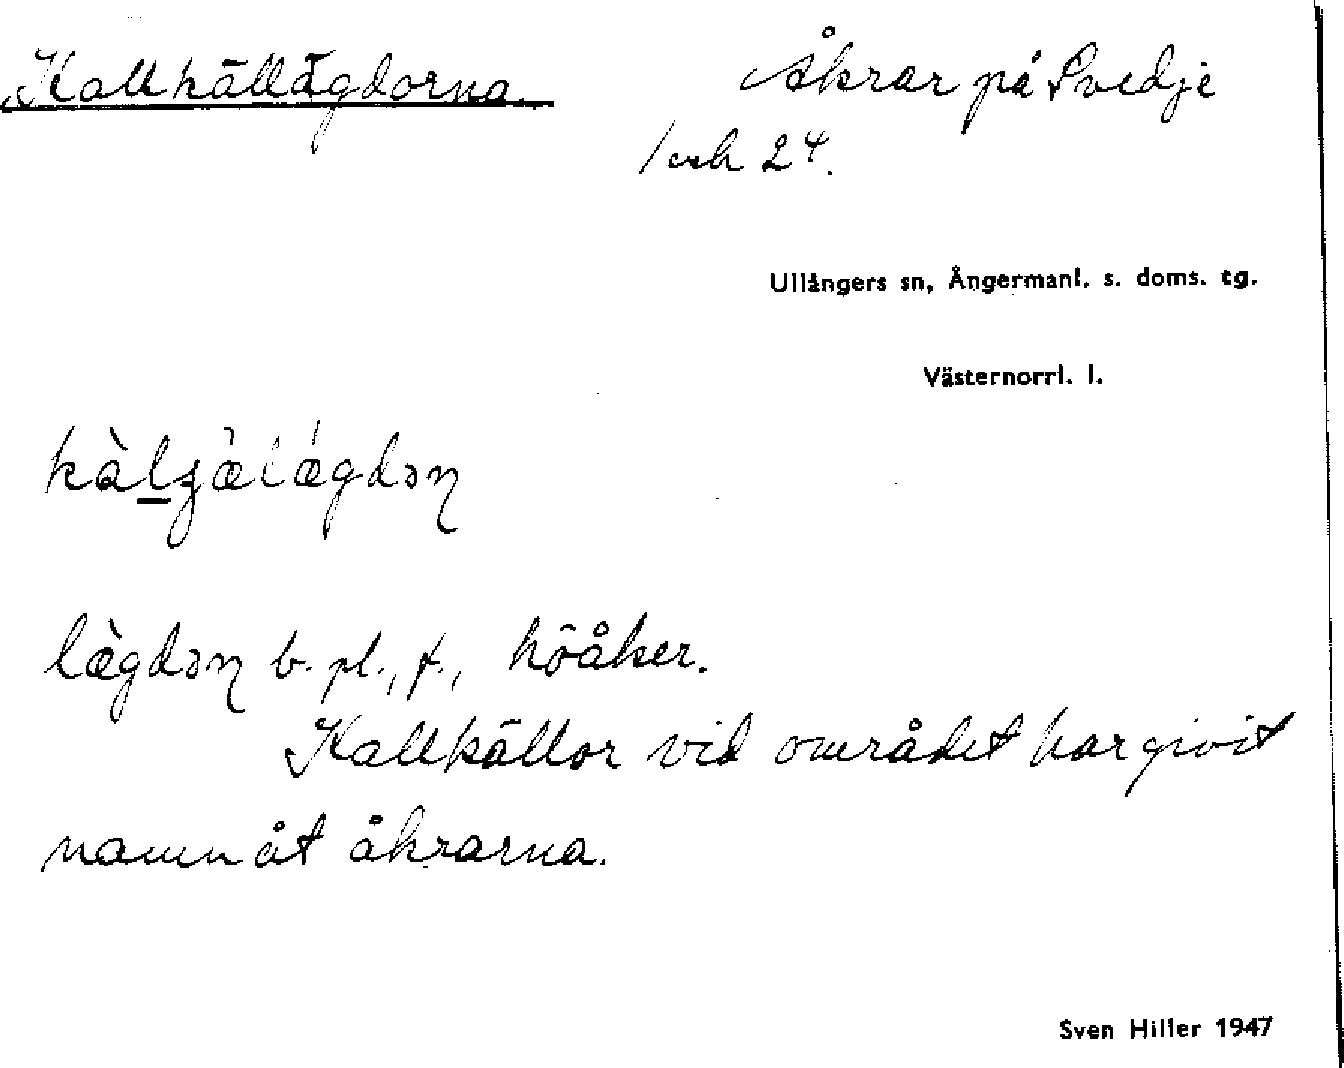 Kallkällägdorna.
Åkrar på Svedje
1 och 24.
Ullångers sn, Ångermanl. s. doms. tg.
Västernorrl. l.
lægdəɳ b. pl., f., höåker.
Kallkällor vid området har givit
namn åt åkrarna.
Sven Hiller 1947